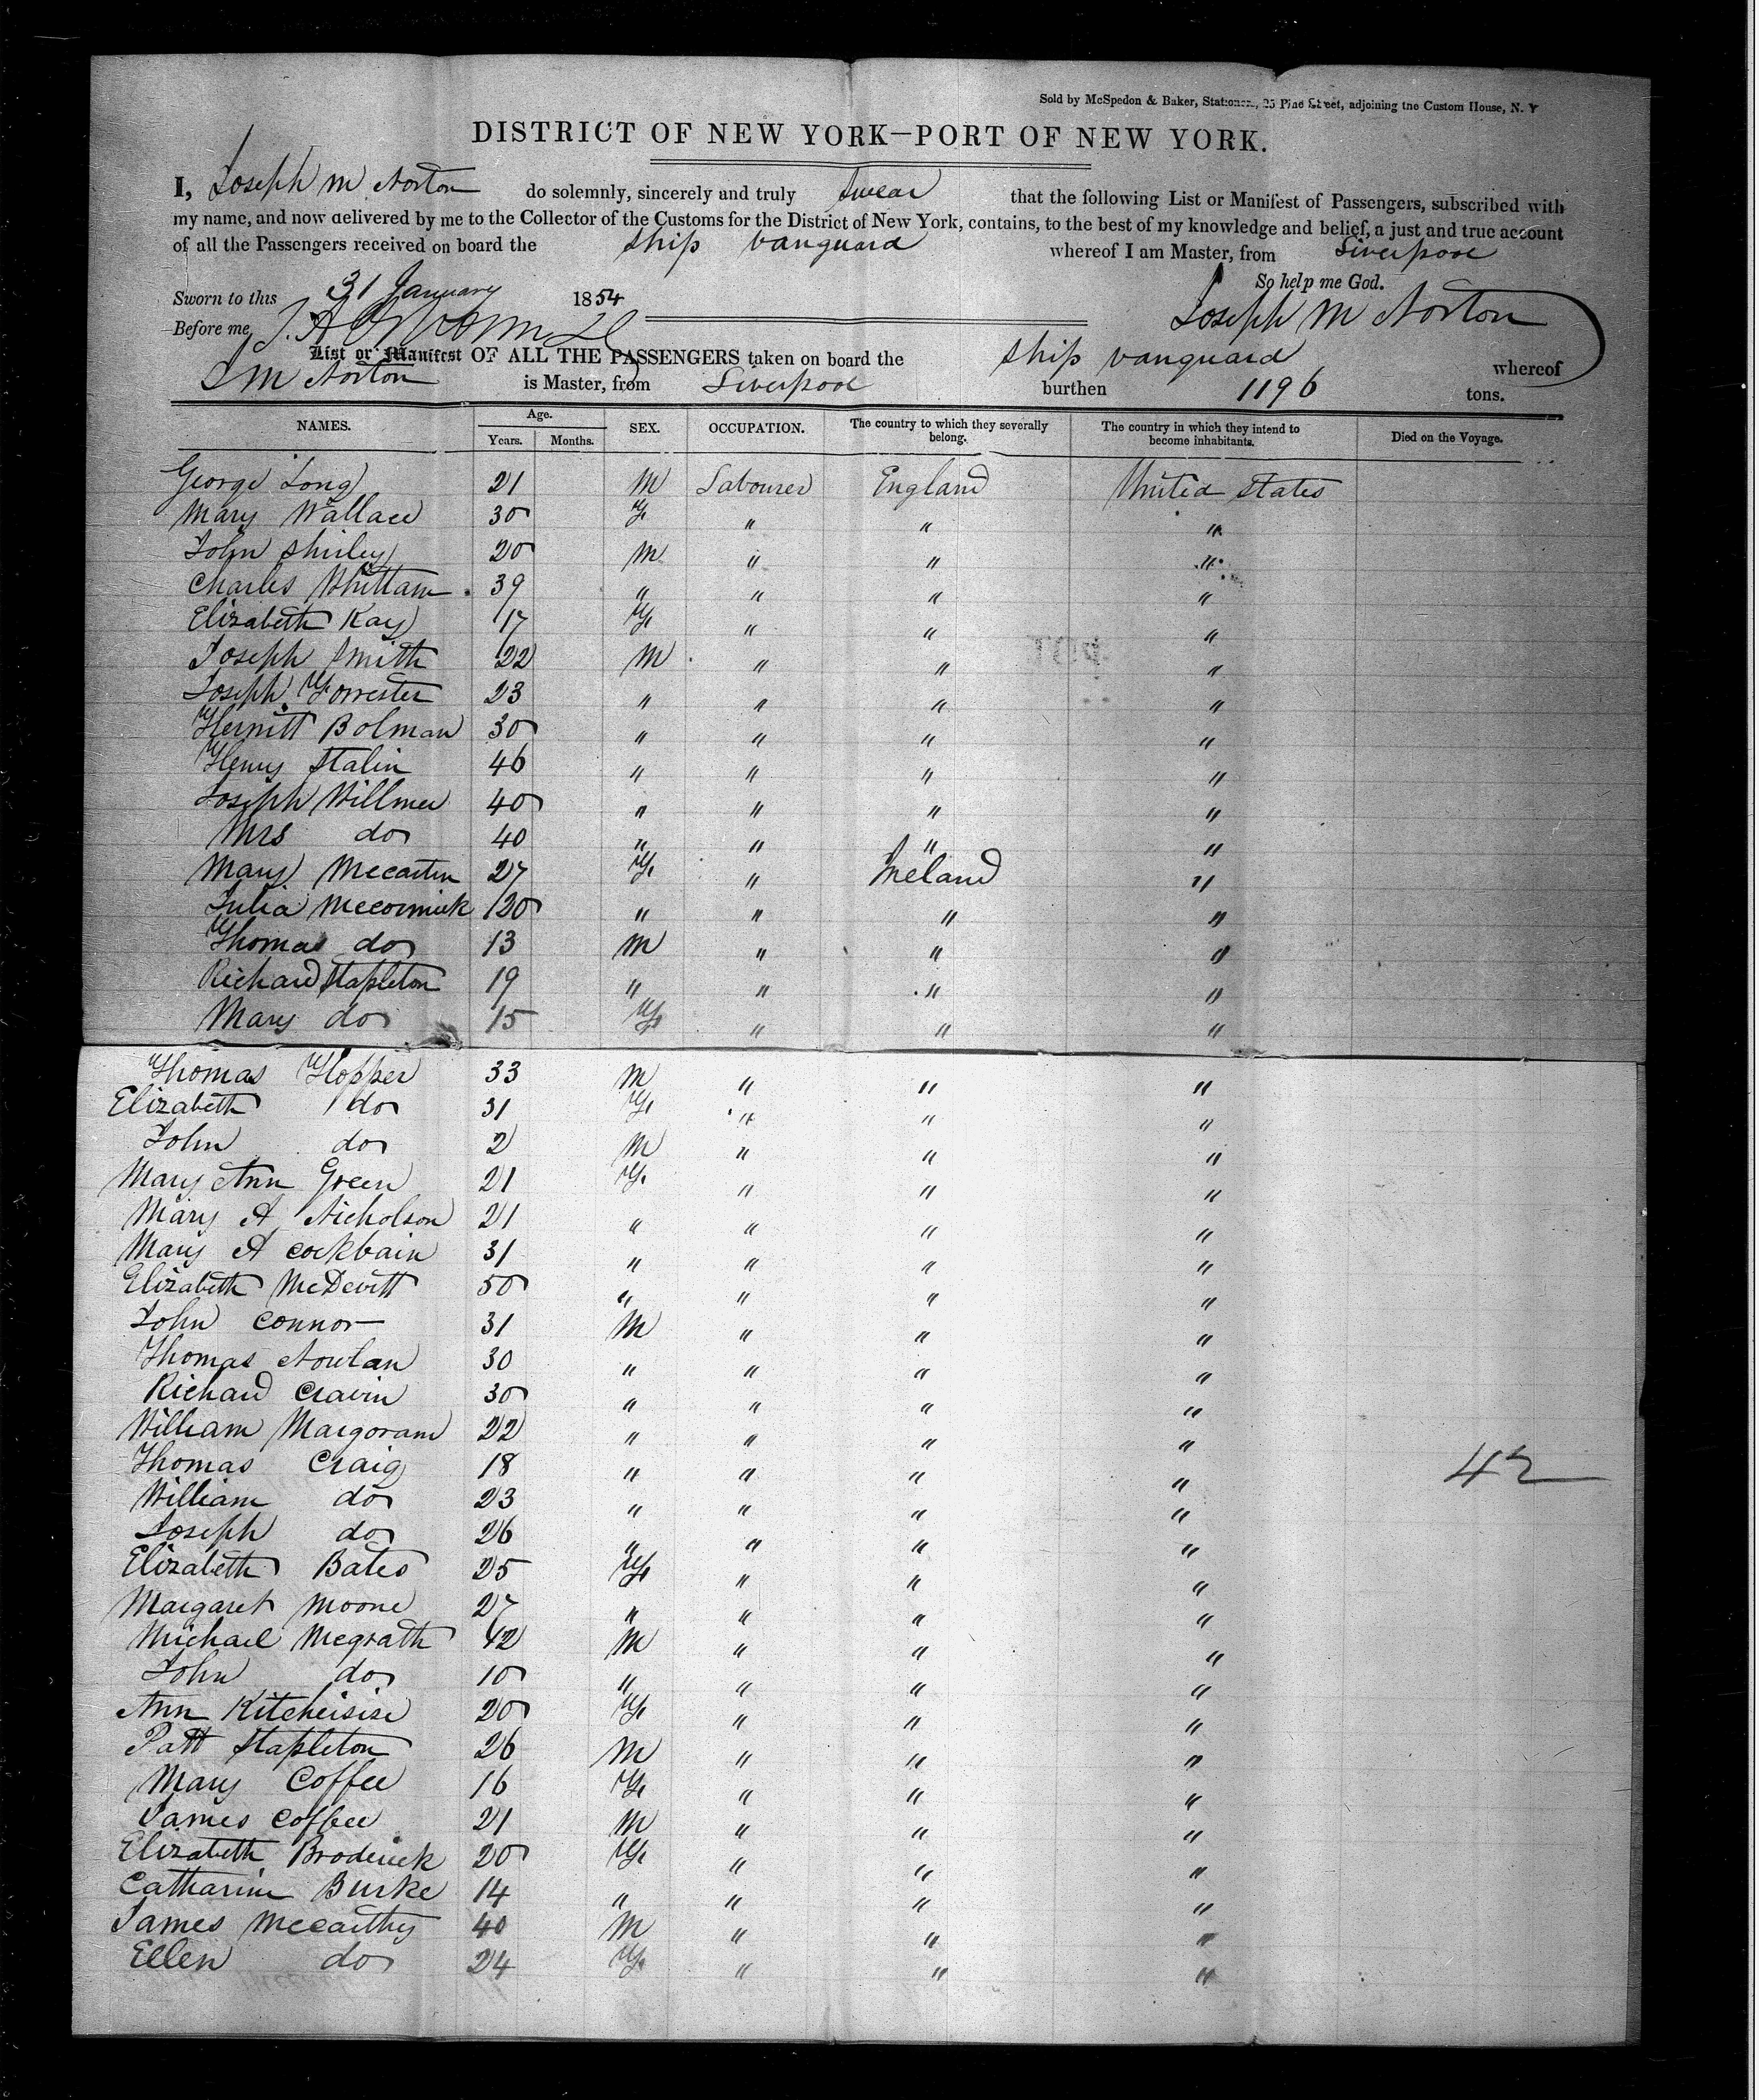 Sold by McSpedon & Baker, Stationers, 25 Pine Street, adjoining the Custom House, N. Y
DISTRICT OF NEW YORK—PORT OF NEW YORK.
I, Joseph M Norton do solemnly, sincerely and truly swear that the following List or Manifest of Passengers, subscribed with
my name, and now delivered by me to the Collector of the Customs for the District of New York, contains, to the best of my knowledge and belief, a just and true account
of all the Passengers received on board the ship vanguard whereof I am Master, from Liverpool
So help me God.
Sworn to this 31 January 1854
Joseph M Norton
Before me,
List or Manifest OF ALL THE PASSENGERS taken on board the ship vanguard whereof
J M Norton is Master, from Liverpool burthen 1196 tons.
NAMES. Age. Years. Months. SEX. OCCUPATION. The country to which they severally belong. The country in which they intend to become inhabitants. Died on the Voyage.
George Long 21 M Labourer England United States
Mary Wallace 30 F " " "
John Shirley 20 M " " "
Charles Whittam 39 " " " "
Elizabeth Kay 17 F " " "
Joseph Smith 22 M " " "
Joseph Forrester 23 " " " "
Hernitt Bolman 30 " " " "
Henry Stalin 46 " " " "
Joseph Willmer 40 " " " "
Mrs do 40 " " " "
Mary Mccartin 27 F " Ireland "
Julia Mccormick 20 " " " "
Thomas do 13 M " " "
Richard Stapleton 19 " " " "
Mary do 15 F " " "
Thomas Hopper 33 M " " "
Elizabeth do 31 F " " "
John do 2 M " " "
Mary Ann Green 21 F " " "
Mary A Nicholson 21 " " " "
Mary A Cockbain 31 " " " "
Elizabeth McDevitt 50 " " " "
John Connor 31 M " " "
Thomas Nowlan 30 " " " "
Richard Cravin 30 " " " "
William Margoram 22 " " " "
Thomas Craig 18 " " " "
42
William do 23 " " " "
Joseph do 26 " " " "
Elizabeth Bates 25 F " " "
Margaret Moone 27 " " " "
Michael Mcgrath 42 M " " "
John do 10 " " " "
Ann 20 F " " "
Patt Stapleton 26 M " " "
Mary Coffee 16 F " " "
James Coffee 21 M " " "
Elizabeth Broderick 20 F " " "
Catharine Burke 14 " " " "
James Mccarthy 40 M " " "
Ellen do 24 F " " "